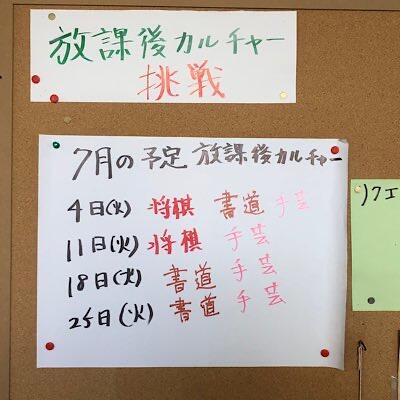 放課後カルチャー
挑戦
7月の予定 放課後カルチャー
4日(火) 将棋 書道 手芸
11日(火) 将棋 手芸
18日(火) 書道 手芸
25日(火) 書道 手芸